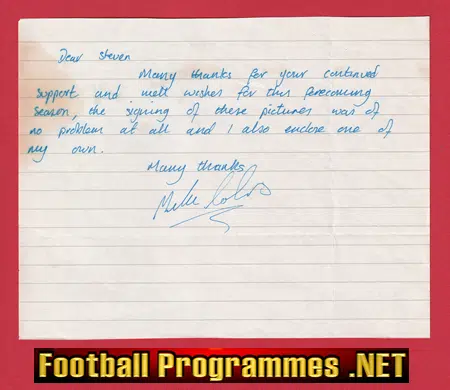 Dear Steven
Many thanks for your continued
support and well wishes for this forecoming
season, the signing of these pictures was of
no problem at all and I also enclose one of
my own.
Many thanks
Mike
Football Programmes .NET